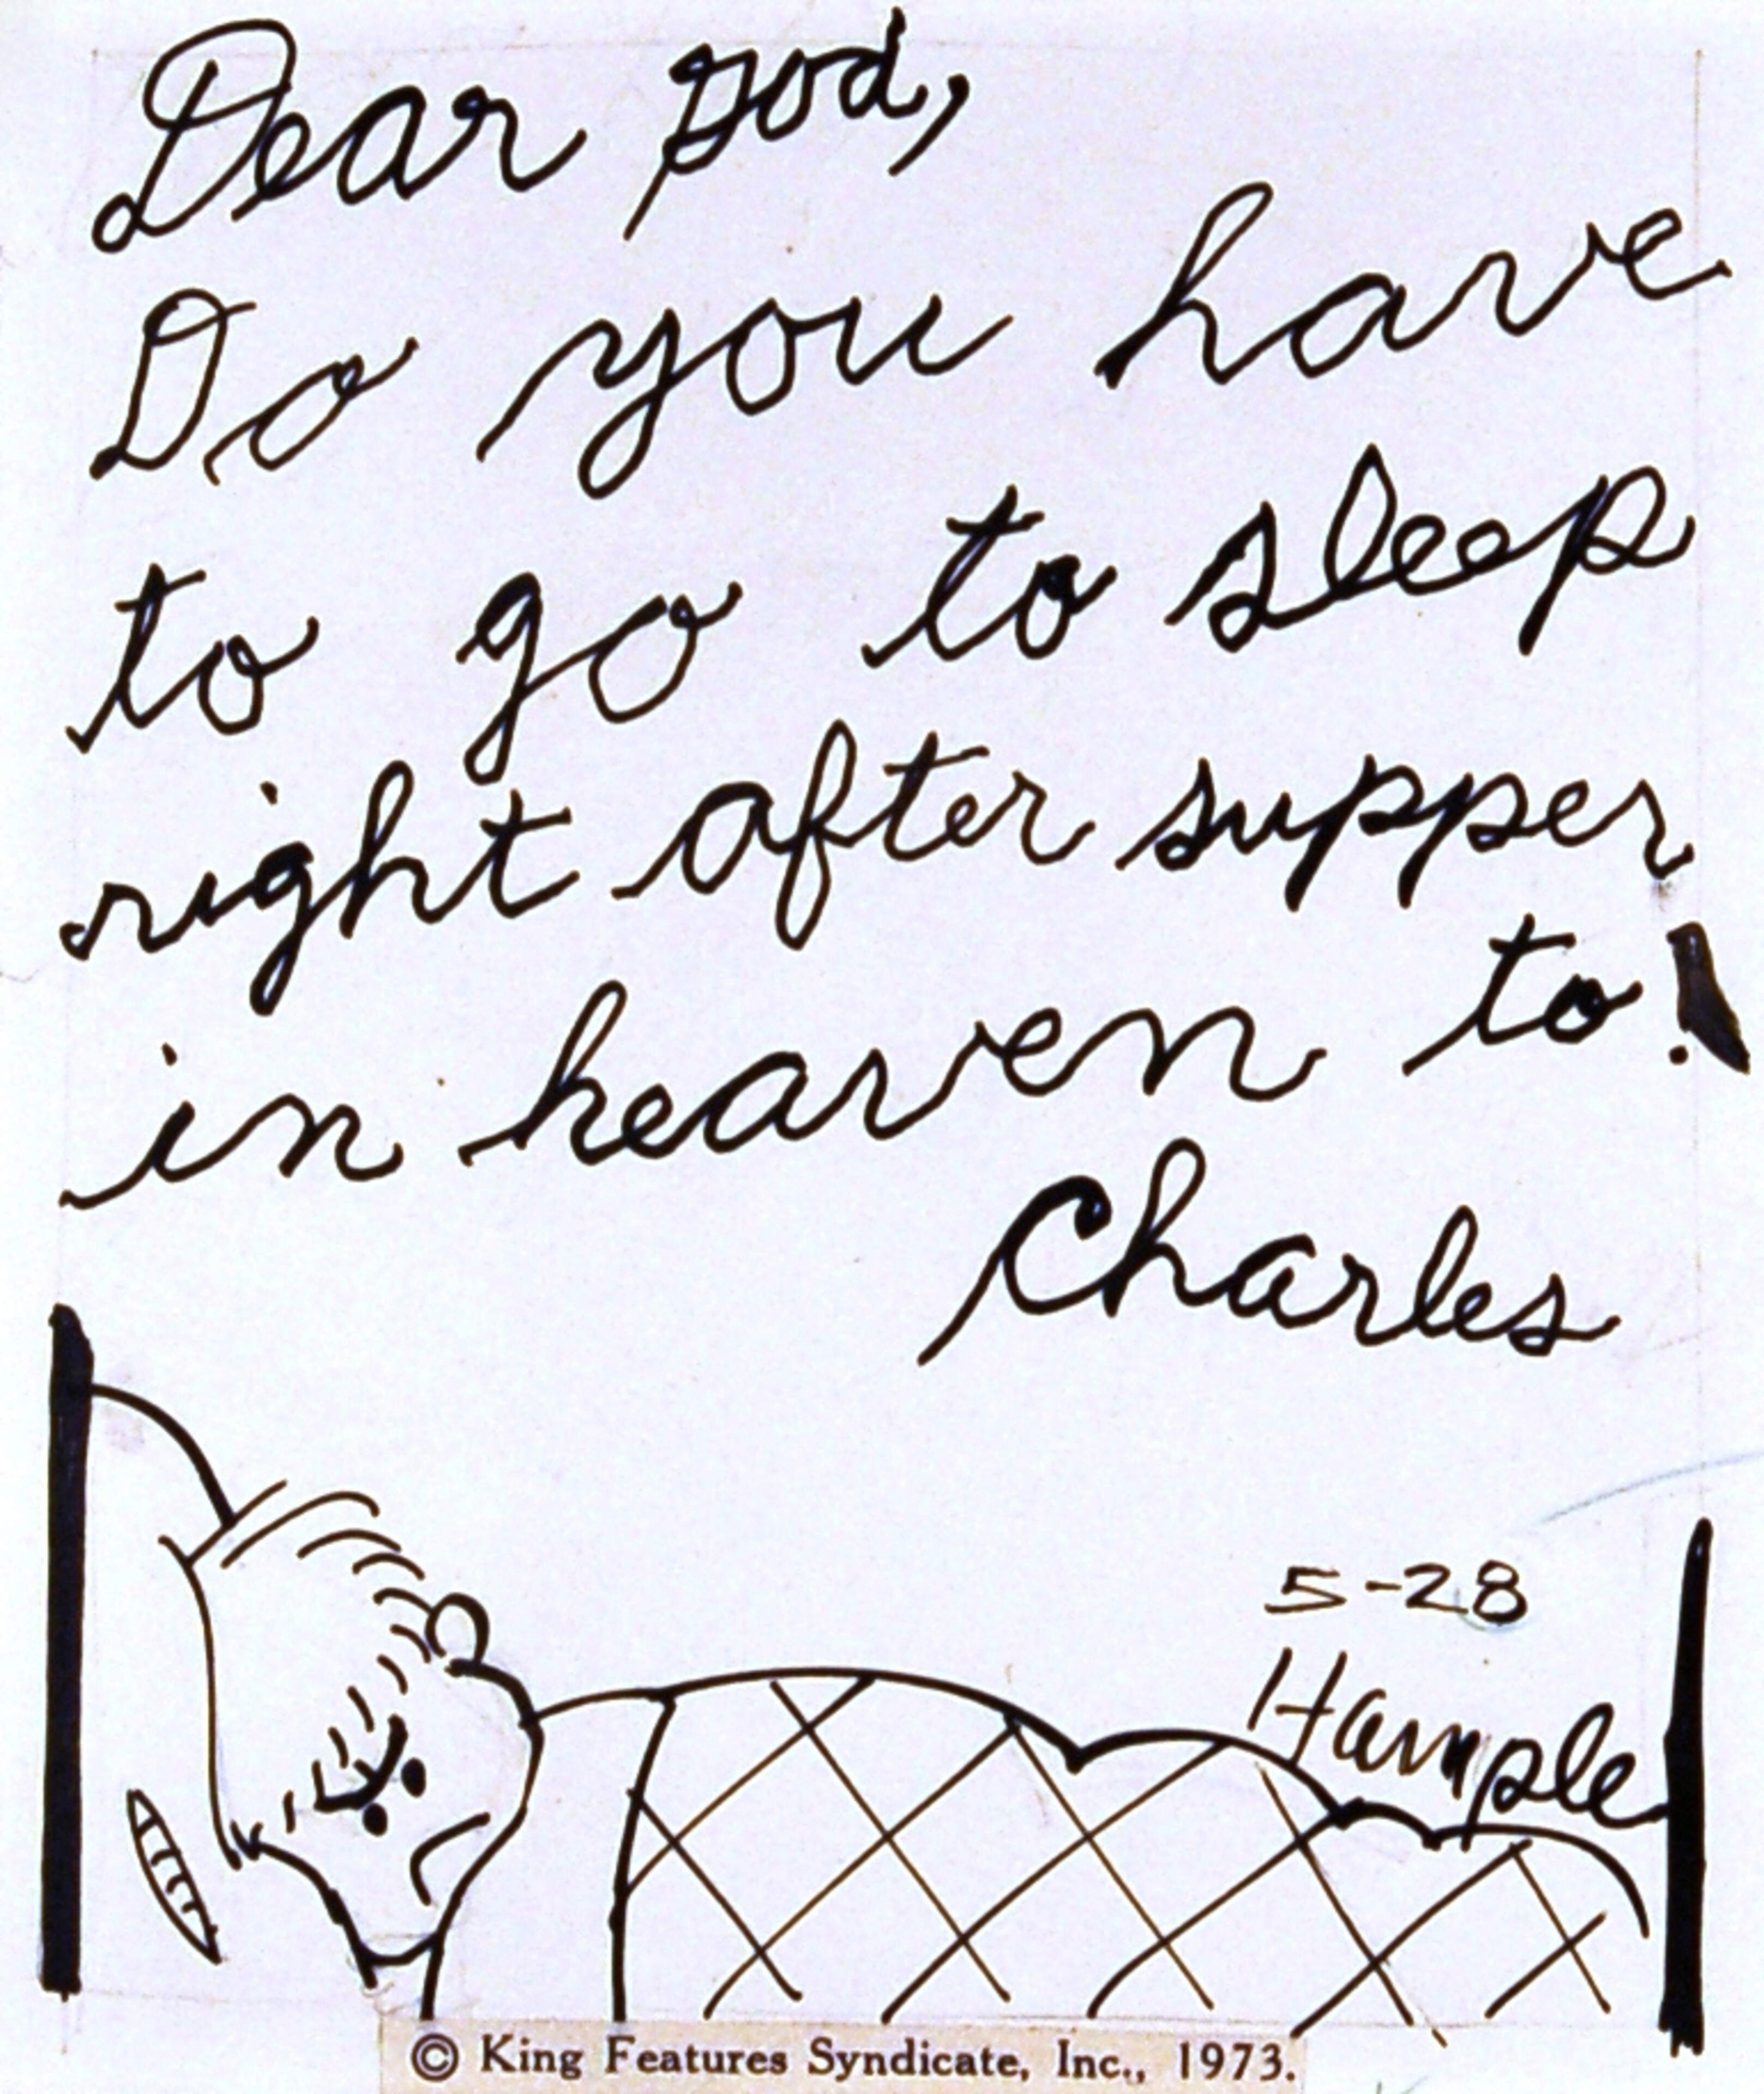 Dear god,
Do you have
to go to sleep
right after supper
in heaven to!
Charles
5-28
Hample
© King Features Syndicate, Inc., 1973.